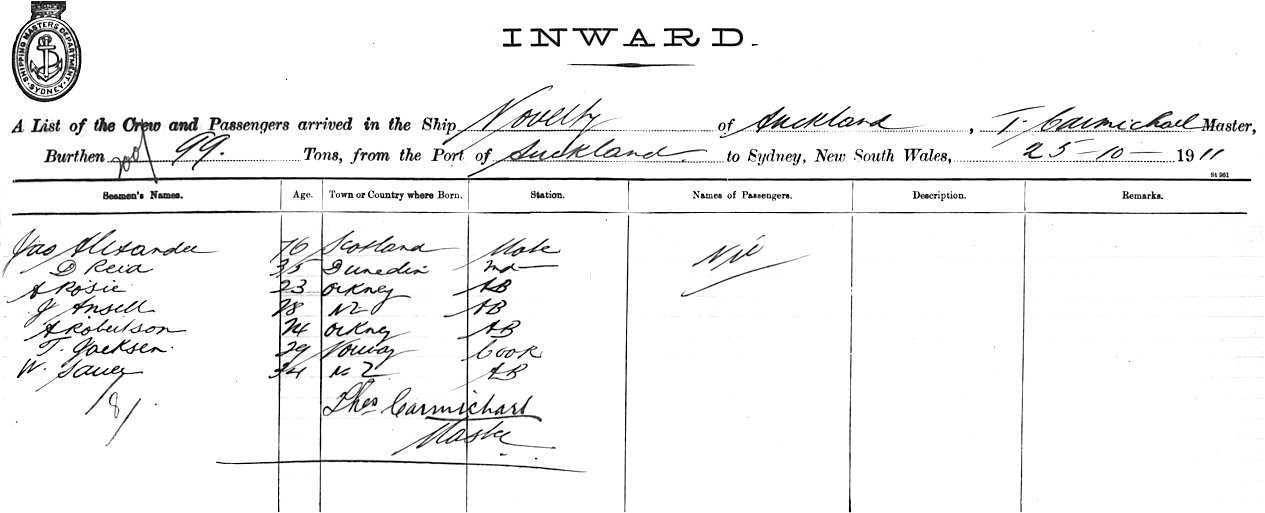 SHIPPING MASTERS DEPARTMENT. SYDNEY.
INWARD.
A List of the Crew and Passengers arrived in the Ship Novelty of Auckland, T. Carmichael Master,
Burthen 99. Tons, from the Port of Auckland to Sydney, New South Wales, 25-10- 1911
St 961
Seamen's Names. Age. Town or Country where Born. Station. Names of Passengers. Description. Remarks.
Jas Alexander Scotland Mate Nil
D Reid 35 Dunedin
A Rosie 23 Orkney AB
J Ansell 28 NZ AB
A Robertson 24 Orkney AB
T. Jacksen. 29 Norway Cook
W. 34 NZ AB
/8/
Thos Carmichael
Master